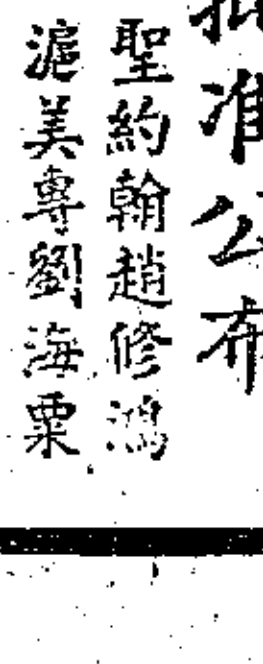 批准公布
聖約翰趙修鴻
滬美專劉海粟